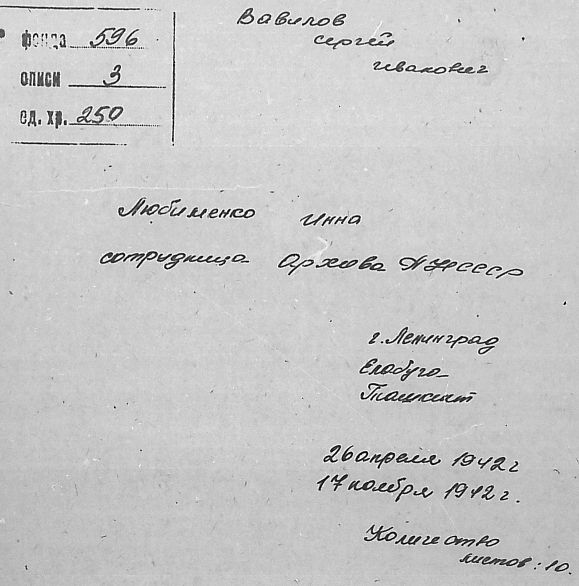 фонда 596
описи 3
ед. хр. 250
Вавилов
Сергей
Иванович
Любименко Инна
сотрудница Архива АН СССР
г. Ленинград
Елабуга
Ташкент
26 апреля 1942 г
17 ноября 1942 г.
Количество
листов: 10.